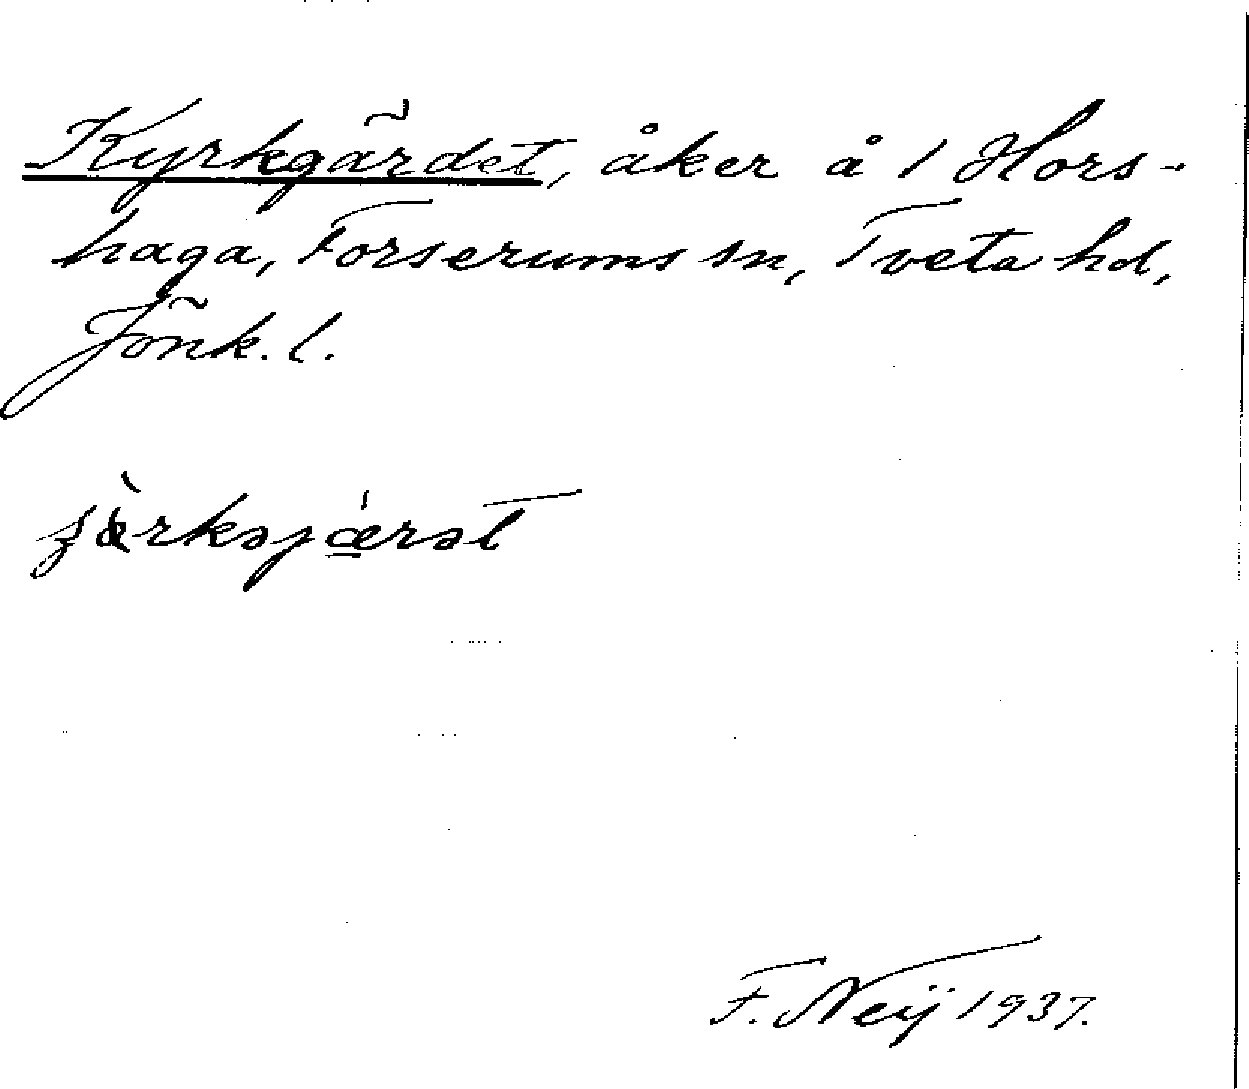 Kyrkgärdet, åker å 1 Hors-
haga, Forserums sn, Tveta hd,
Jönk. l.
F. Neij 1937.